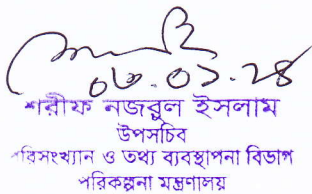 ০৩.০১.২৪
শরীফ নজরুল ইসলাম
উপসচিব
পরিসংখ্যান ও তথ্য ব্যবস্থাপনা বিভাগ
পরিকল্পনা মন্ত্রণালয়